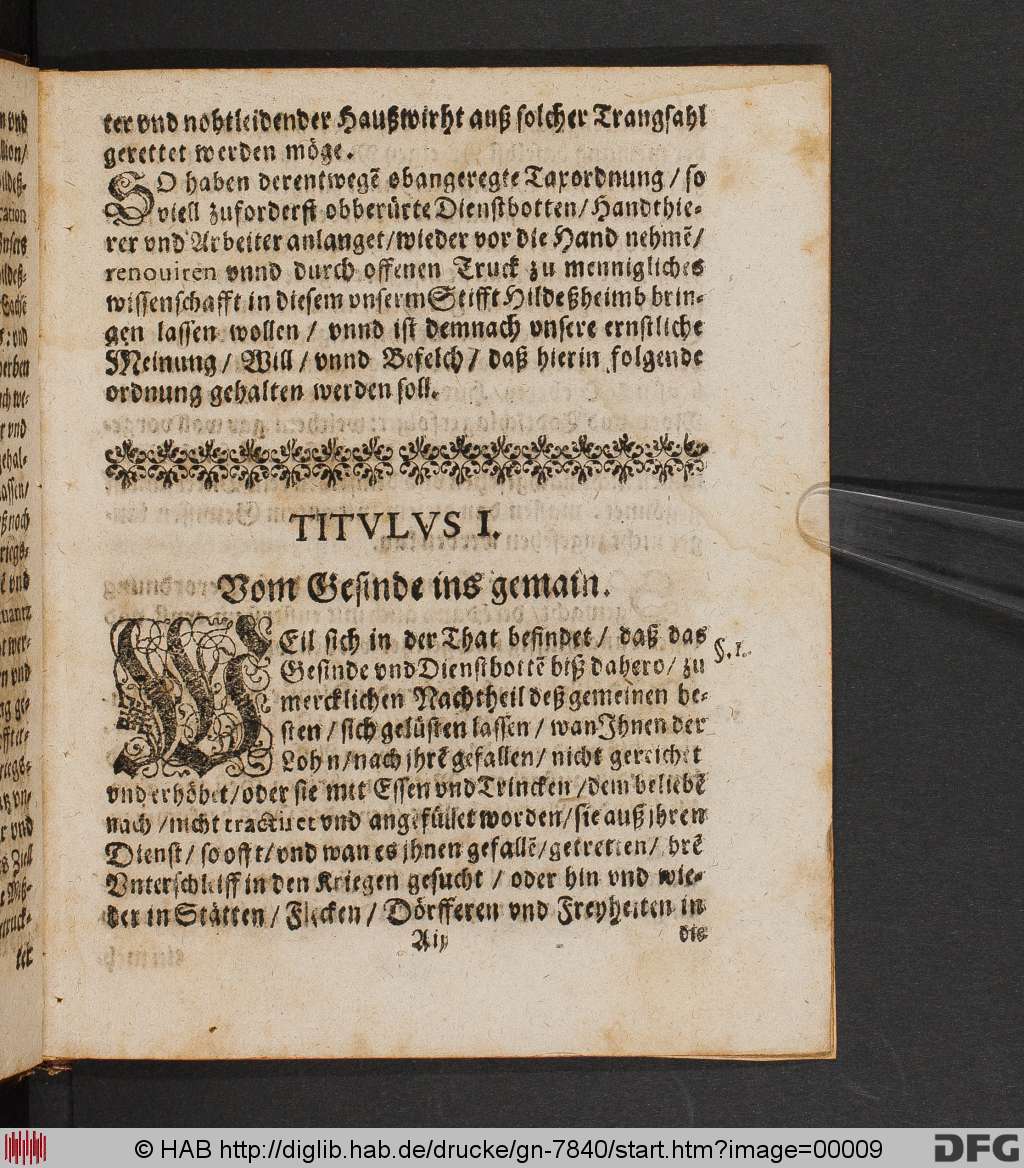 ter vnd nohtleidender Haußwirht auß solcher Trangsahl
gerettet werden möge.
SO haben derentwegē obangeregte Taxordnung / so
viell zuforderst obberürte Dienstbotten / Handthie-
rer vnd Arbeiter anlanget / wieder vor die Hand nehmē /
renouiren vnnd durch offenen Truck zu mennigliches
wissenschafft in diesem vnserm Stifft Hildeßheimb brin-
gen lassen wollen / vnnd ist demnach vnsere ernstliche
Meinung / Will / vnnd Befelch / daß hierin folgende
ordnung gehalten werden soll.
TITVLVS I.
Vom Gesinde ins gemain.
WEil sich in der That befindet / daß das
§. 1.
Gesinde vnd Dienstbottē biß dahero / zu
mercklichen Nachtheil deß gemeinen be-
sten / sich gelüsten lassen / wan Ihnen der
Lohn / nach jhrē gefallen / nicht gereichet
vnd erhöhet / oder sie mit Essen vnd Trincken / dem beliebē
nach / nicht tractiret vnd angefüllet worden / sie auß jhren
Dienst / so offt / vnd wan es jhnen gefallē / getretten / jhrē
Vnterschleiff in den Kriegen gesucht / oder hin vnd wie-
der in Stätten / Flecken / Dörfferen vnd Freyheiten in
Aij
die
© HAB http://diglib.hab.de/drucke/gn-7840/start.htm?image=00009
DFG